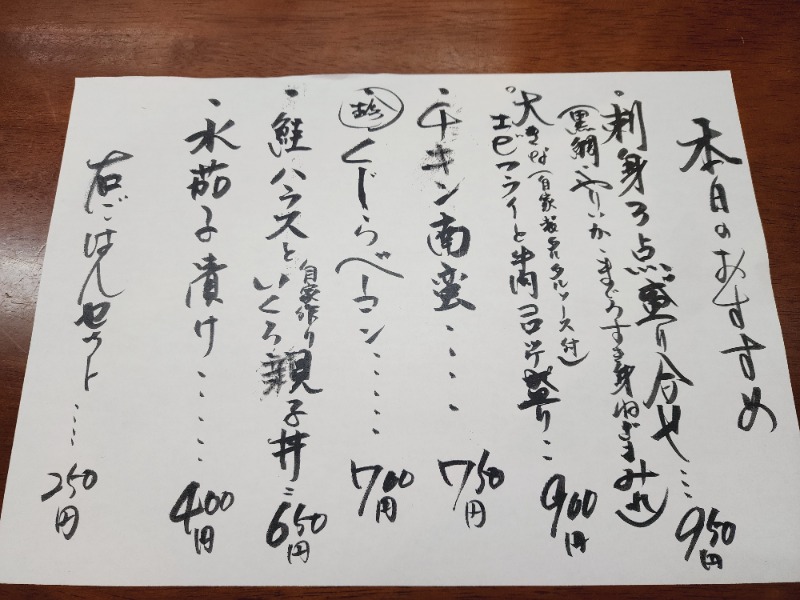 本日のおすすめ
・刺身3点盛り合せ…950円
(黒鯛・やりいか・まぐろすき身ねぎまみれ)
・大きな(自家製タルタルソース付)
エビフライと牛肉コロッケ盛り…900円
・チキン南蛮・・・・750円
・㊙くじらベーコン・・・・・700円
・鮭ハラスといくろ親子丼…650円
自家作り
・水茄子漬け・・・・・400円
右ごはんセット・・・・250円